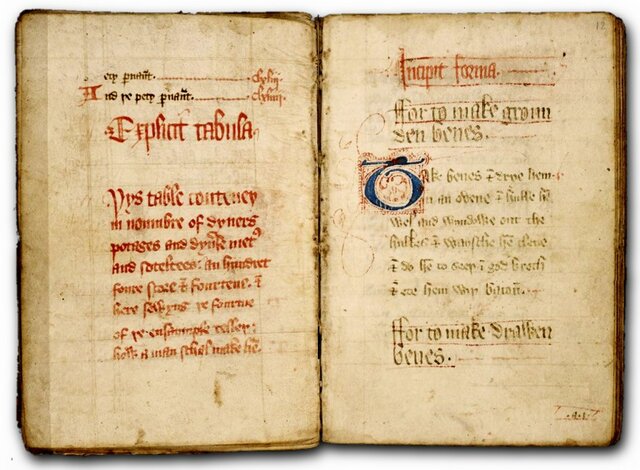 ety pnaūt. clxliii
And þe pety pnaūt. clxliiii
Explicit tabula
Þys table conteneþ
in nombre of dyners
potages and dyuse metꝭ
and soteltees: an hundret
foure score & fourten. &
here sewyng þe fourme
of þe ensample telleþ:
how a man schol make hē.
12
Incipit forma.
ffor to make groun
den benes.
Take benes & drye hem
in an ovene & hulle hē
wel and wyndowe out the
hulkes & waysche hē clene
& do hē to seeþ ī god broth
& ete hem wiþ bacoū.
ffor to make drawen
benes.